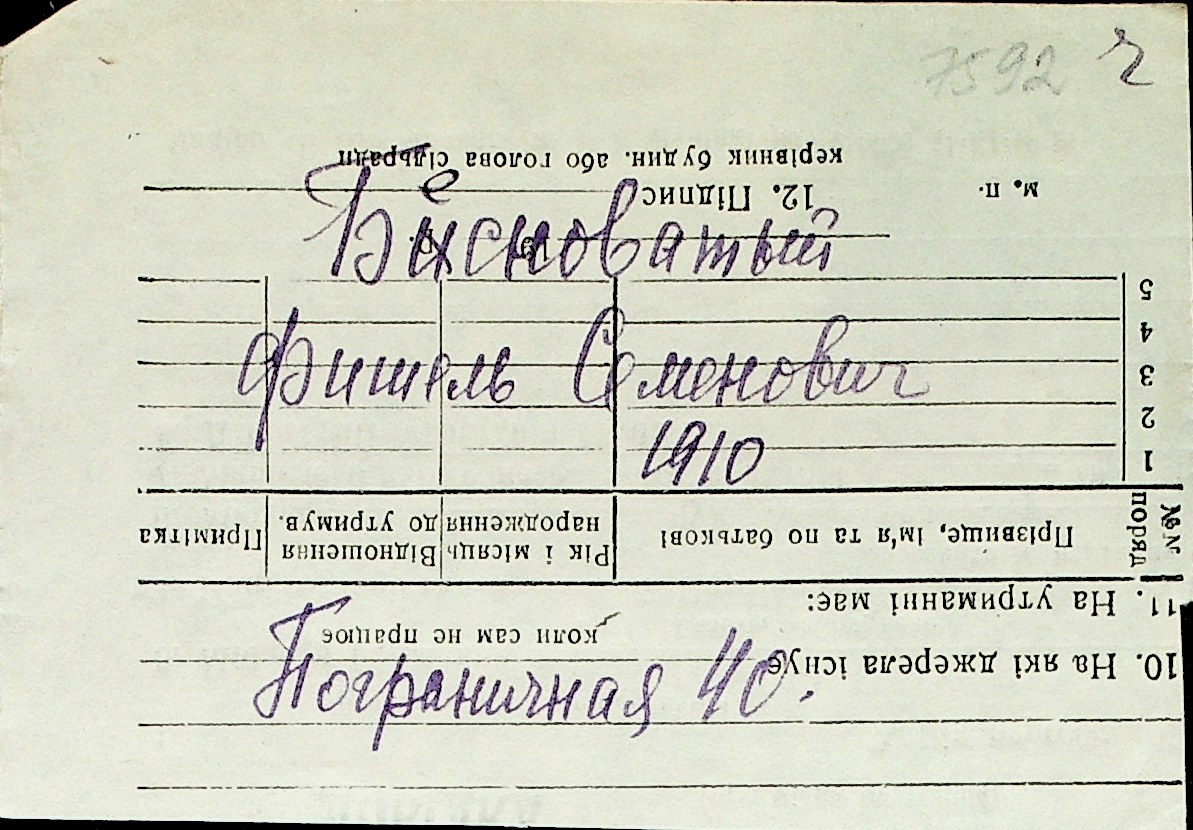 7592 ч
е
Бисноватый
Фишель Семенович
1910
Пограничная 40.
10. На які джерела існує
коли сам не працює
11. На утриманні має:
№№ поряд Прізвище, ім'я та по батькові Рік і місяць народження Відношення до утримув. Примітка
1
2
3
4
5
19 р.
м. п. 12. Підпис
керівник будин. або голова сільради